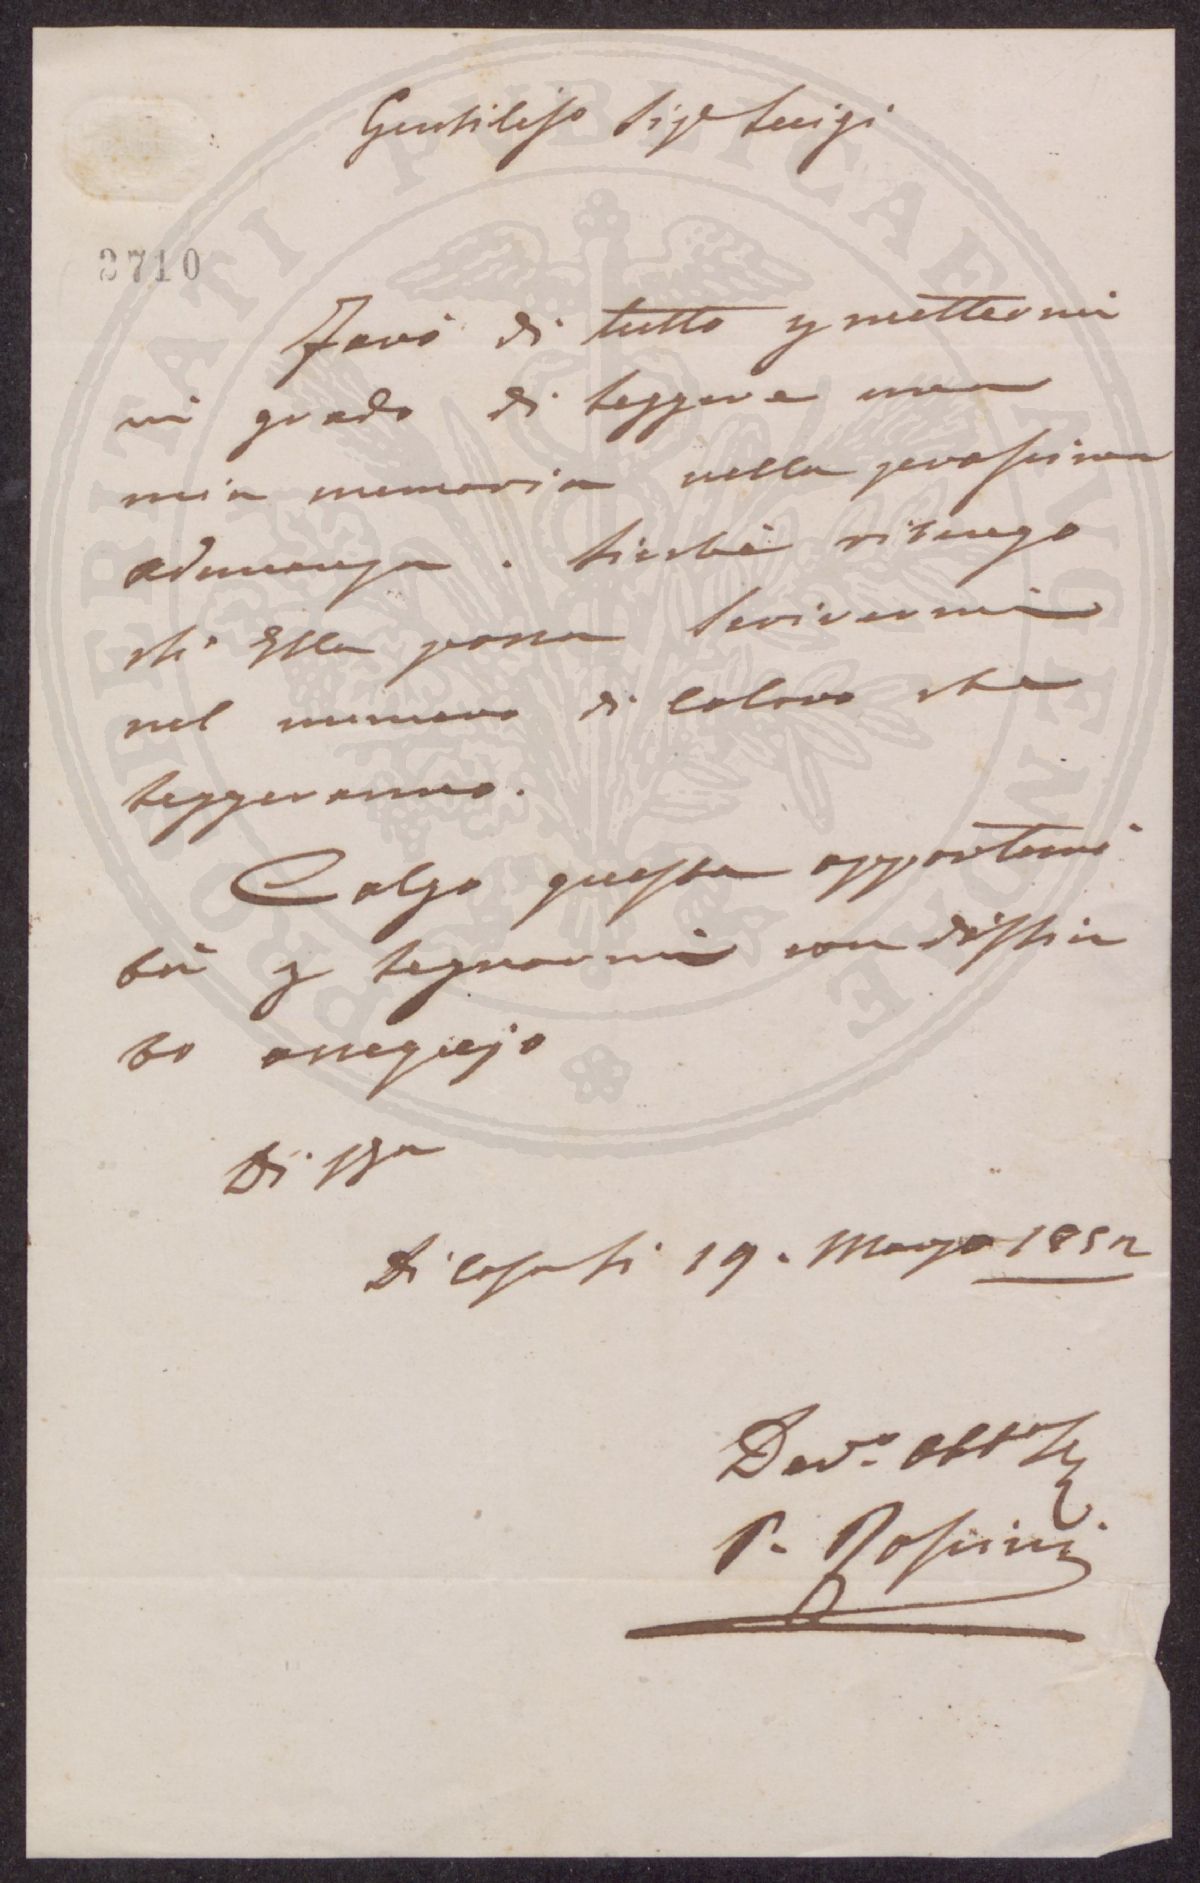 PROSPERITATI PUBLICAE AUGENDAE
Gentiliss.o Sig.r Luigi
2710
Farò di tutto p mettermi
in grado di leggere una
mia memoria nella prossima
adunanza. Sicchè ritengo
che Ella possa scrivermi
nel numero di coloro che
leggeranno.
Colgo questa opportuni
tà p segnarmi con distin
to ossequio
Di
Di Casa li 19. Marzo 1852
Dev.o Obb.o
P. Rossini